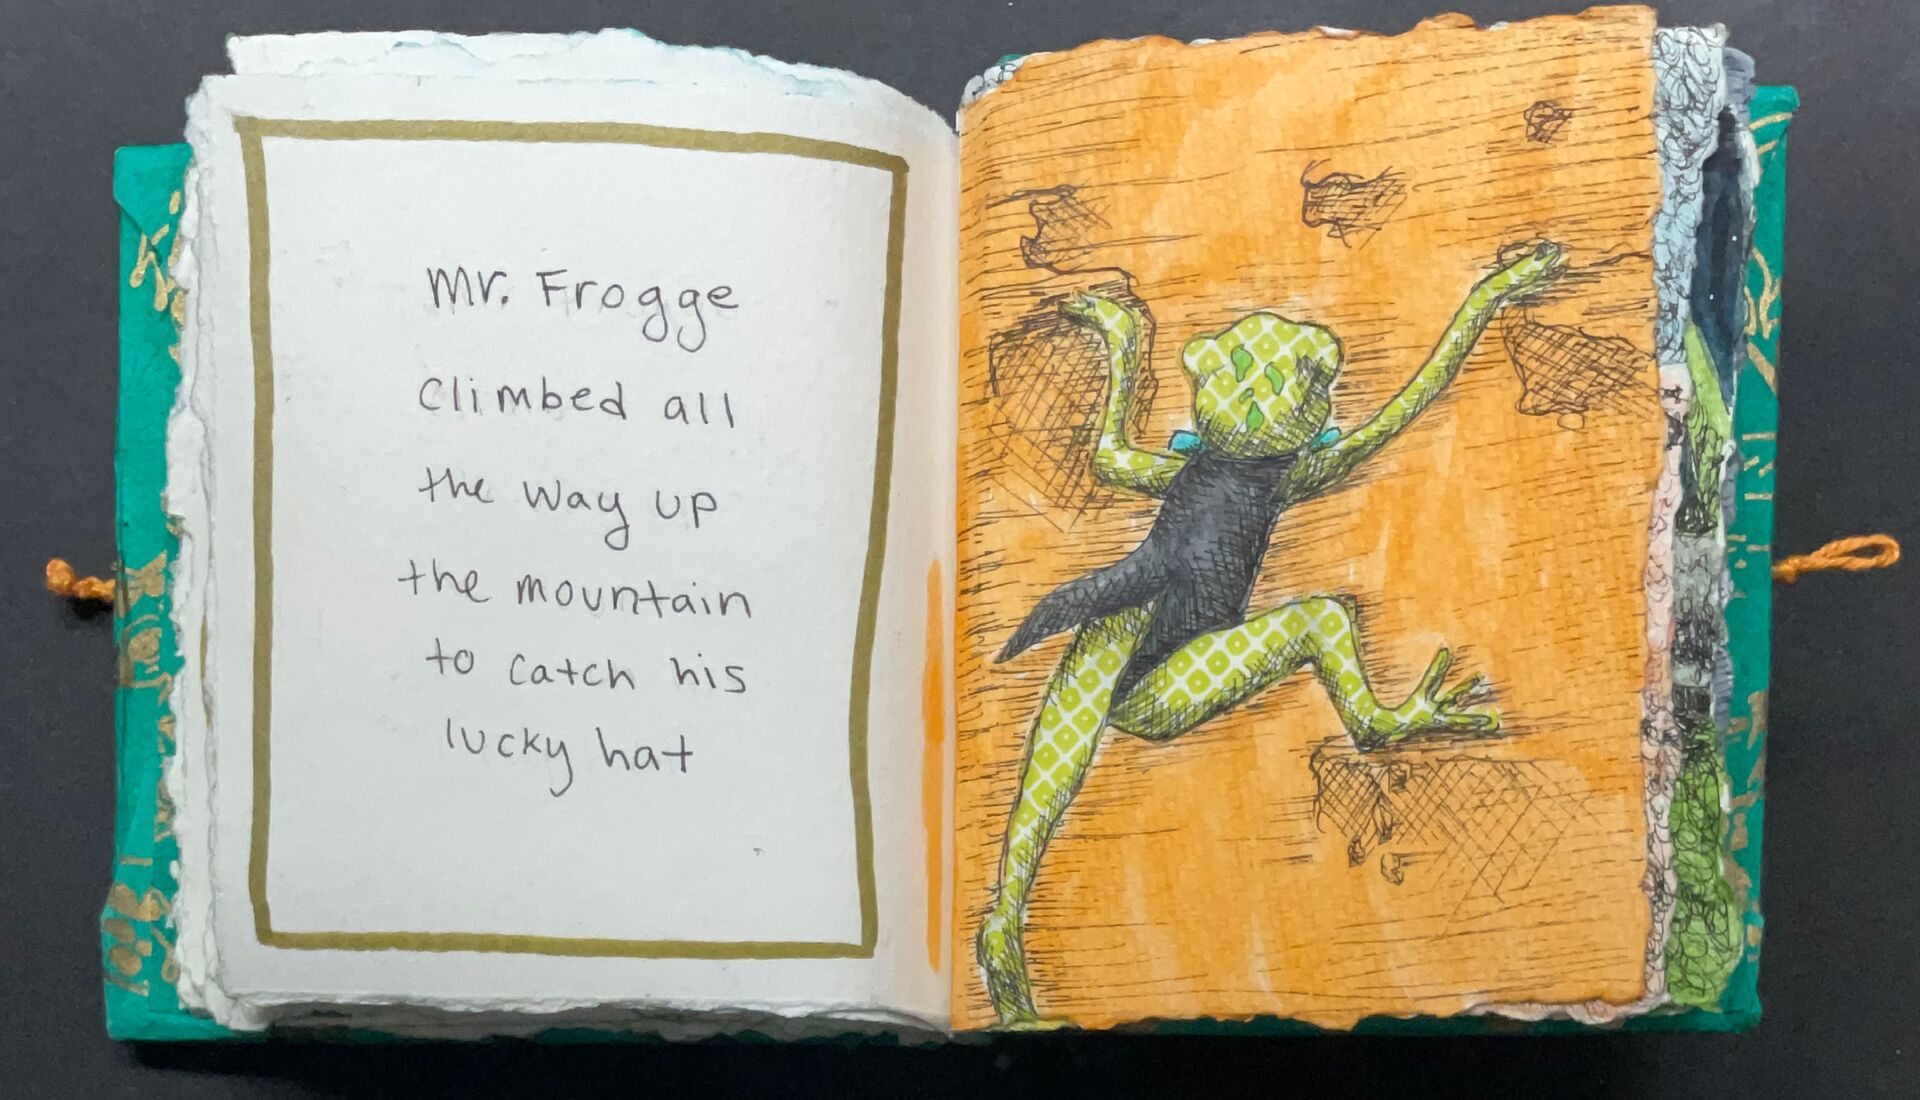 Mr. Frogge
climbed all
the way up
the mountain
to catch his
lucky hat